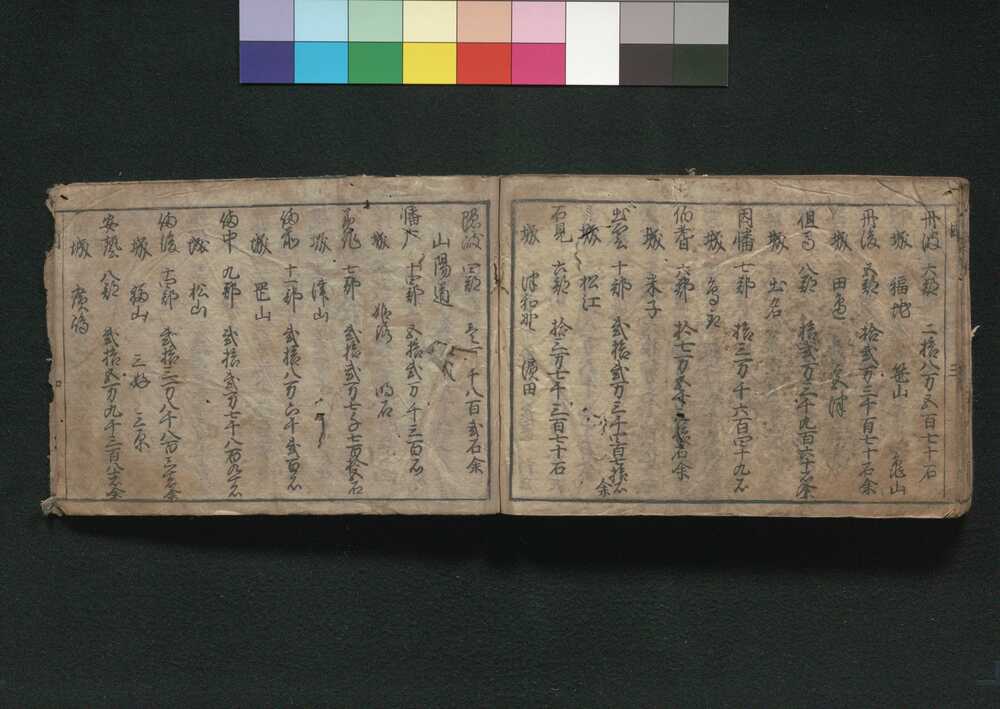 丹波 六郡 二拾八万五百七十石
城 福地 笹山 亀山
丹後 五郡 拾弐万三千百七十石余
城 田邉 宮津
但馬 八郡 拾弐万三千九百六十石余
城 出石
因幡 七郡 拾三万千六百四十九石
城 鳥取
伯耆 六郡 拾七万五千 石余
城 米子
出雲 十郡 弐拾弐万三千 百 拾石余
城 松江
石見 六郡 拾三万七千三百七十石
城 津和野 濱田
隠岐 四郡 壱万千八百弐石余
山陽道
幡广 十四郡 五拾弐万千三百石
城 姫路 明石
美作 七郡 弐拾弐万七千七百 石
城 津山
備前 十一郡 弐拾八万六千弐百石
城 岡山
備中 九郡 弐拾弐万七千八百九十石
城 松山
備後 十四郡 弐拾三万八千八百 石余
城 福山 三好 三原
安藝 八郡 弐拾五万九千三百八十石余
城 廣嶋
三